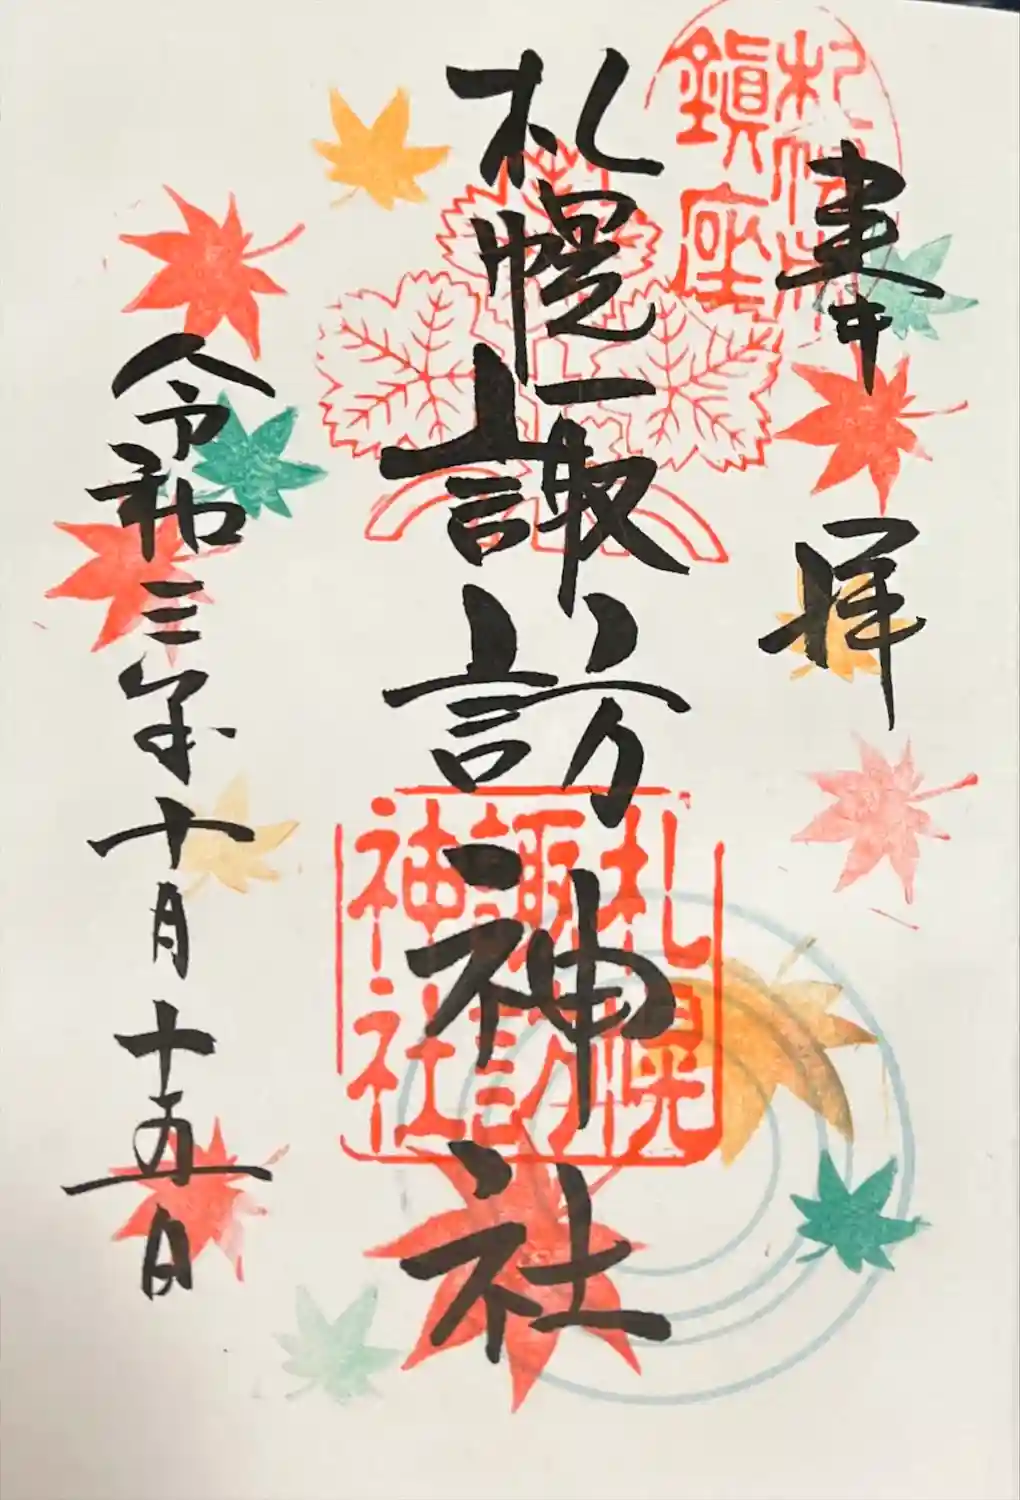 奉拝
札幌諏訪神社
令和三年十月十五日
札幌村
鎮座
札幌
諏訪
神社